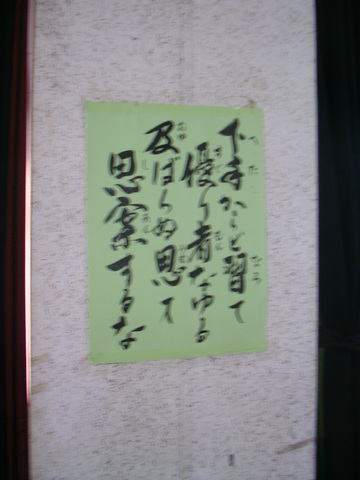 下手からど習て
優り者なゆる
及ばらぬ思て
思案するな